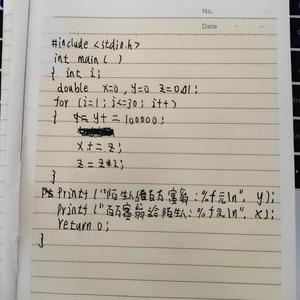 No.
Date
#include <stdio.h>
int main( )
{ int i;
double x=0, y=0 z=0.01;
for (i=1; i<=30; i++)
{ y+=100000;
x += z;
z = z*2;
}
printf ("陌生人给百万富翁:%f元\n", y);
printf ("百万富翁给陌生人:%f元\n", x);
return 0;
}